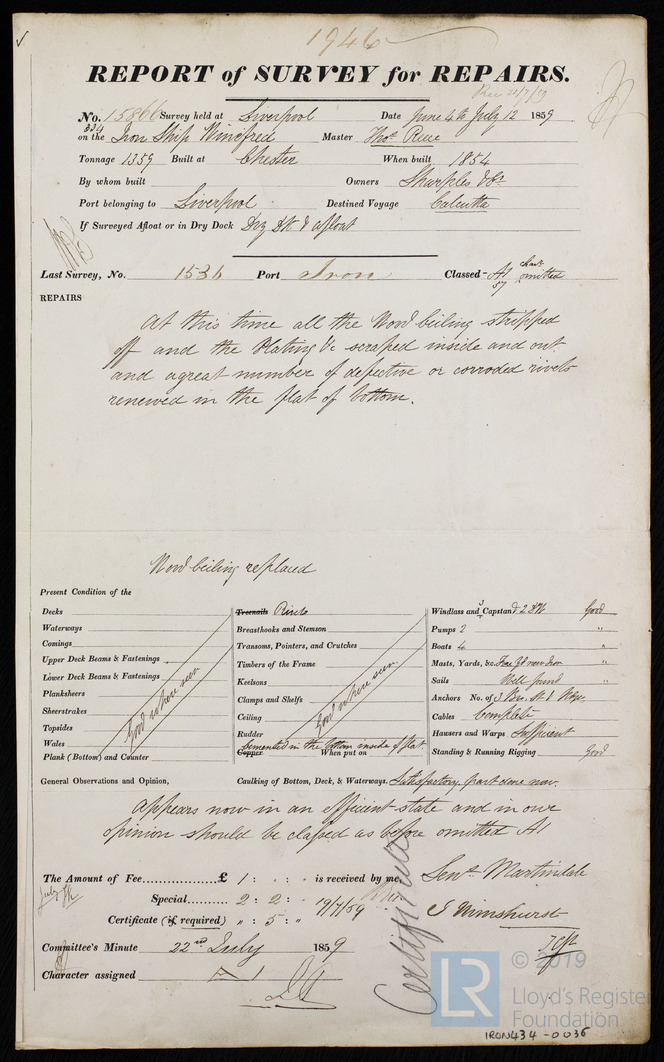 1946
REPORT of SURVEY for REPAIRS.
Rec 21/7/59
No. 15866 Survey held at Liverpool Date June 4th July 12 1859
334
on the Iron Ship Winefred Master Thos.
Tonnage 1359 Built at Chester When built 1854
By whom built Owners Sharples & Co.
Port belonging to Liverpool Destined Voyage Calcutta
If Surveyed Afloat or in Dry Dock Dry Dk & afloat
Last Survey, No. 1536 Port Iron Classed A1 omitted
57
REPAIRS
At this time all the Wood ceiling stripped
off and the Plating &c scraped inside and out
and a great number of defective or corroded rivets
renewed in the flat of bottom.
Wood ceiling replaced
Present Condition of the
Decks
Waterways
Comings
Upper Deck Beams & Fastenings
Lower Deck Beams & Fastenings
Planksheers
Sheerstrakes
Topsides
Wales
Plank (Bottom) and Counter
Good where seen
Treenails Rivets
Breasthooks and Stemson
Transoms, Pointers, and Crutches
Timbers of the Frame
Keelsons
Clamps and Shelfs
Ceiling
Rudder
Good where seen
Cemented in the bottom inside of flat
Copper When put on
Windlass and Capstan Good
Pumps 2 "
Boats 4 "
Masts, Yards, &c. "
Sails Well found "
Anchors No. of 3
Cables Complete
Hausers and Warps Sufficient
Standing & Running Rigging Good
General Observations and Opinion, Caulking of Bottom, Deck, & Waterways. Satisfactory. part done now.
Appears now in an efficient state and in our
opinion should be classed as before omitted A1
The Amount of Fee £ 1 : : is received by me,
Special 2 : 2 : 19/7/59
Certificate (if required) " : 5 : "
Martindale
J Wimshurst
Certificate
Committee's Minute 22nd July 1859
Character assigned A 1
LR
© 2019
Lloyd's Register
Foundation
IRON434-0036